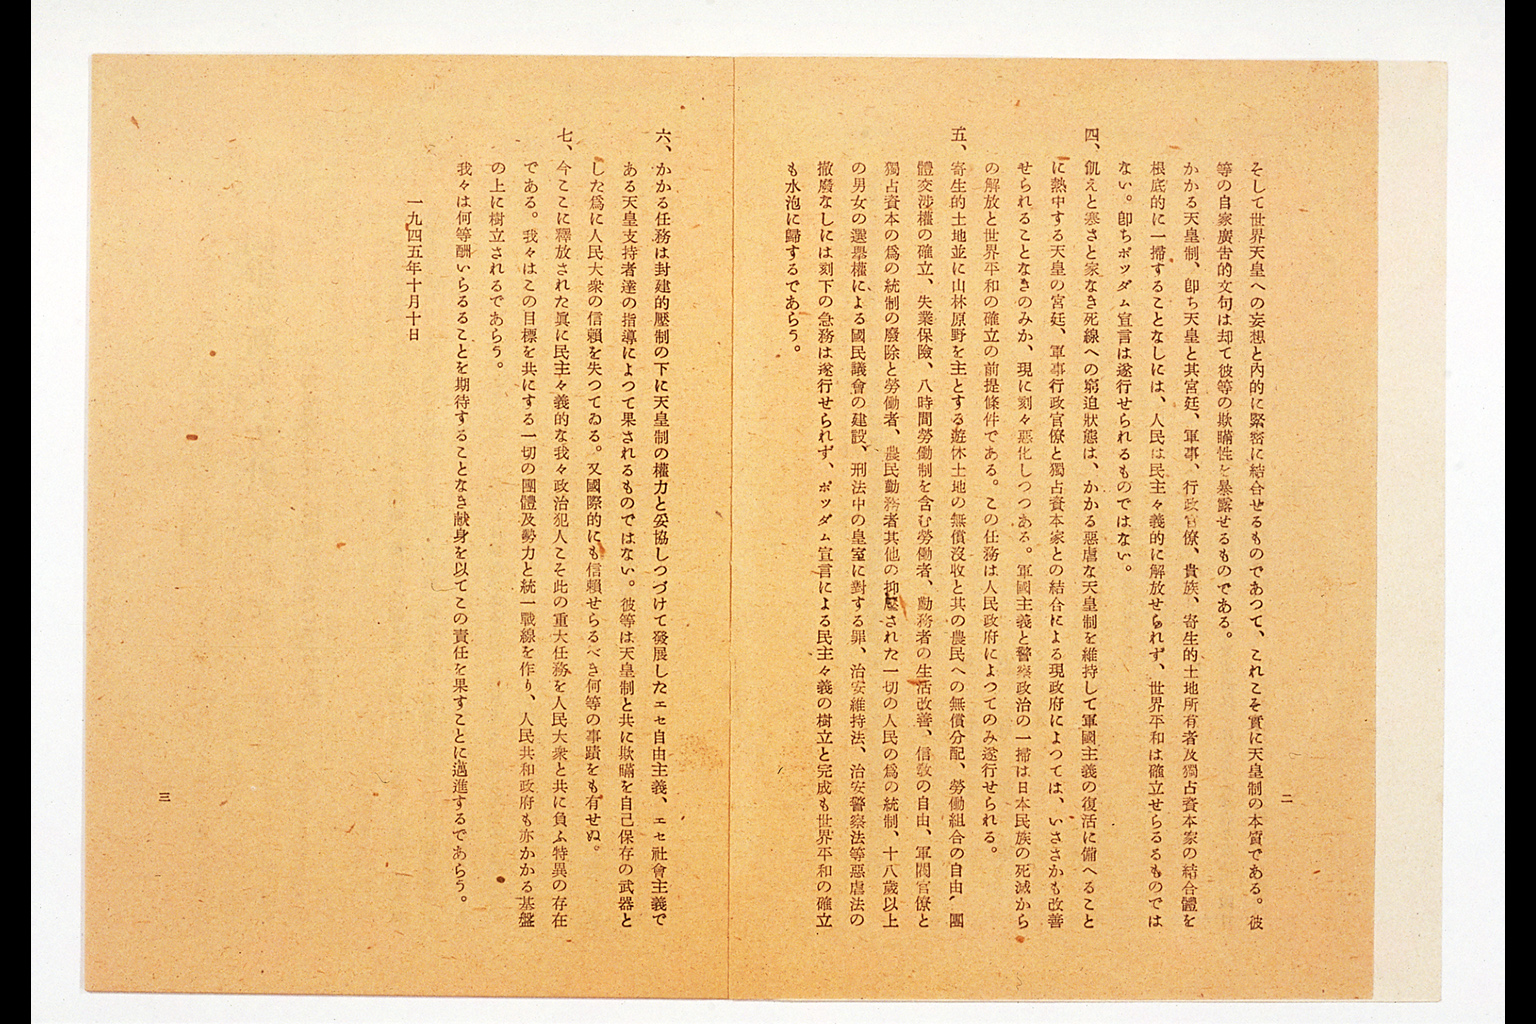 そして世界天皇への妄想と內的に緊密に結合せるものであつて、これこそ實に天皇制の本質である。彼
等の自家廣吿的文句は却て彼等の欺瞞性を暴露せるものである。
かかる天皇制、卽ち天皇と其宮廷、軍事、行政官僚、貴族、寄生的土地所有者及獨占資本家の結合體を
根底的に一掃することなしには、人民は民主々義的に解放せられず、世界平和は確立せらるるものでは
ない。卽ちポツダム宣言は遂行せられるものではない。
四、飢えと寒さと家なき死線への窮迫狀態は、かかる惡虐な天皇制を維持して軍國主義の復活に備へること
に熱中する天皇の宮廷、軍事行政官僚と獨占資本家との結合による現政府によつては、いささかも改善
せられることなきのみか、現に刻々惡化しつつある。軍國主義と警察政治の一掃は日本民族の死滅から
の解放と世界平和の確立の前提條件である。この任務は人民政府によつてのみ遂行せられる。
五、寄生的土地並に山林原野を主とする遊休土地の無償沒收と其の農民への無償分配、勞働組合の自由、團
體交涉權の確立、失業保險、八時間勞働制を含む勞働者、勤務者の生活改善、信敎の自由、軍閥官僚と
獨占資本の爲の統制の廢除と勞働者、農民勤務者其他の抑壓された一切の人民の爲の統制、十八歲以上
の男女の選擧權による國民議會の建設、刑法中の皇室に對する罪、治安維持法、治安警察法等惡虐法の
撤廢なしには刻下の急務は遂行せられず、ポツダム宣言による民主々義の樹立と完成も世界平和の確立
も水泡に歸するであらう。
二
六、かかる任務は封建的壓制の下に天皇制の權力と妥協しつづけて發展したエセ自由主義、エセ社會主義で
ある天皇支持者達の指導によつて果されるものではない。彼等は天皇制と共に欺瞞を自己保存の武器と
した爲に人民大衆の信賴を失つてゐる。又國際的にも信賴せらるべき何等の事蹟をも有せぬ。
七、今ここに釋放された眞に民主々義的な我々政治犯人こそ此の重大任務を人民大衆と共に負ふ特異の存在
である。我々はこの目標を共にする一切の團體及勢力と統一戰線を作り、人民共和政府も亦かかる基盤
の上に樹立されるであらう。
我々は何等酬いらるることを期待することなき献身を以てこの責任を果すことに邁進するであらう。
一九四五年十月十日
三